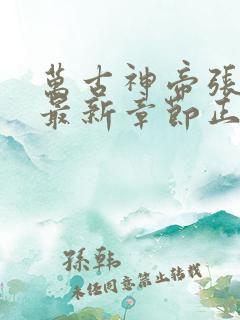 萬古神帝張
最新章節正
孫韓
未經同意禁止轉載